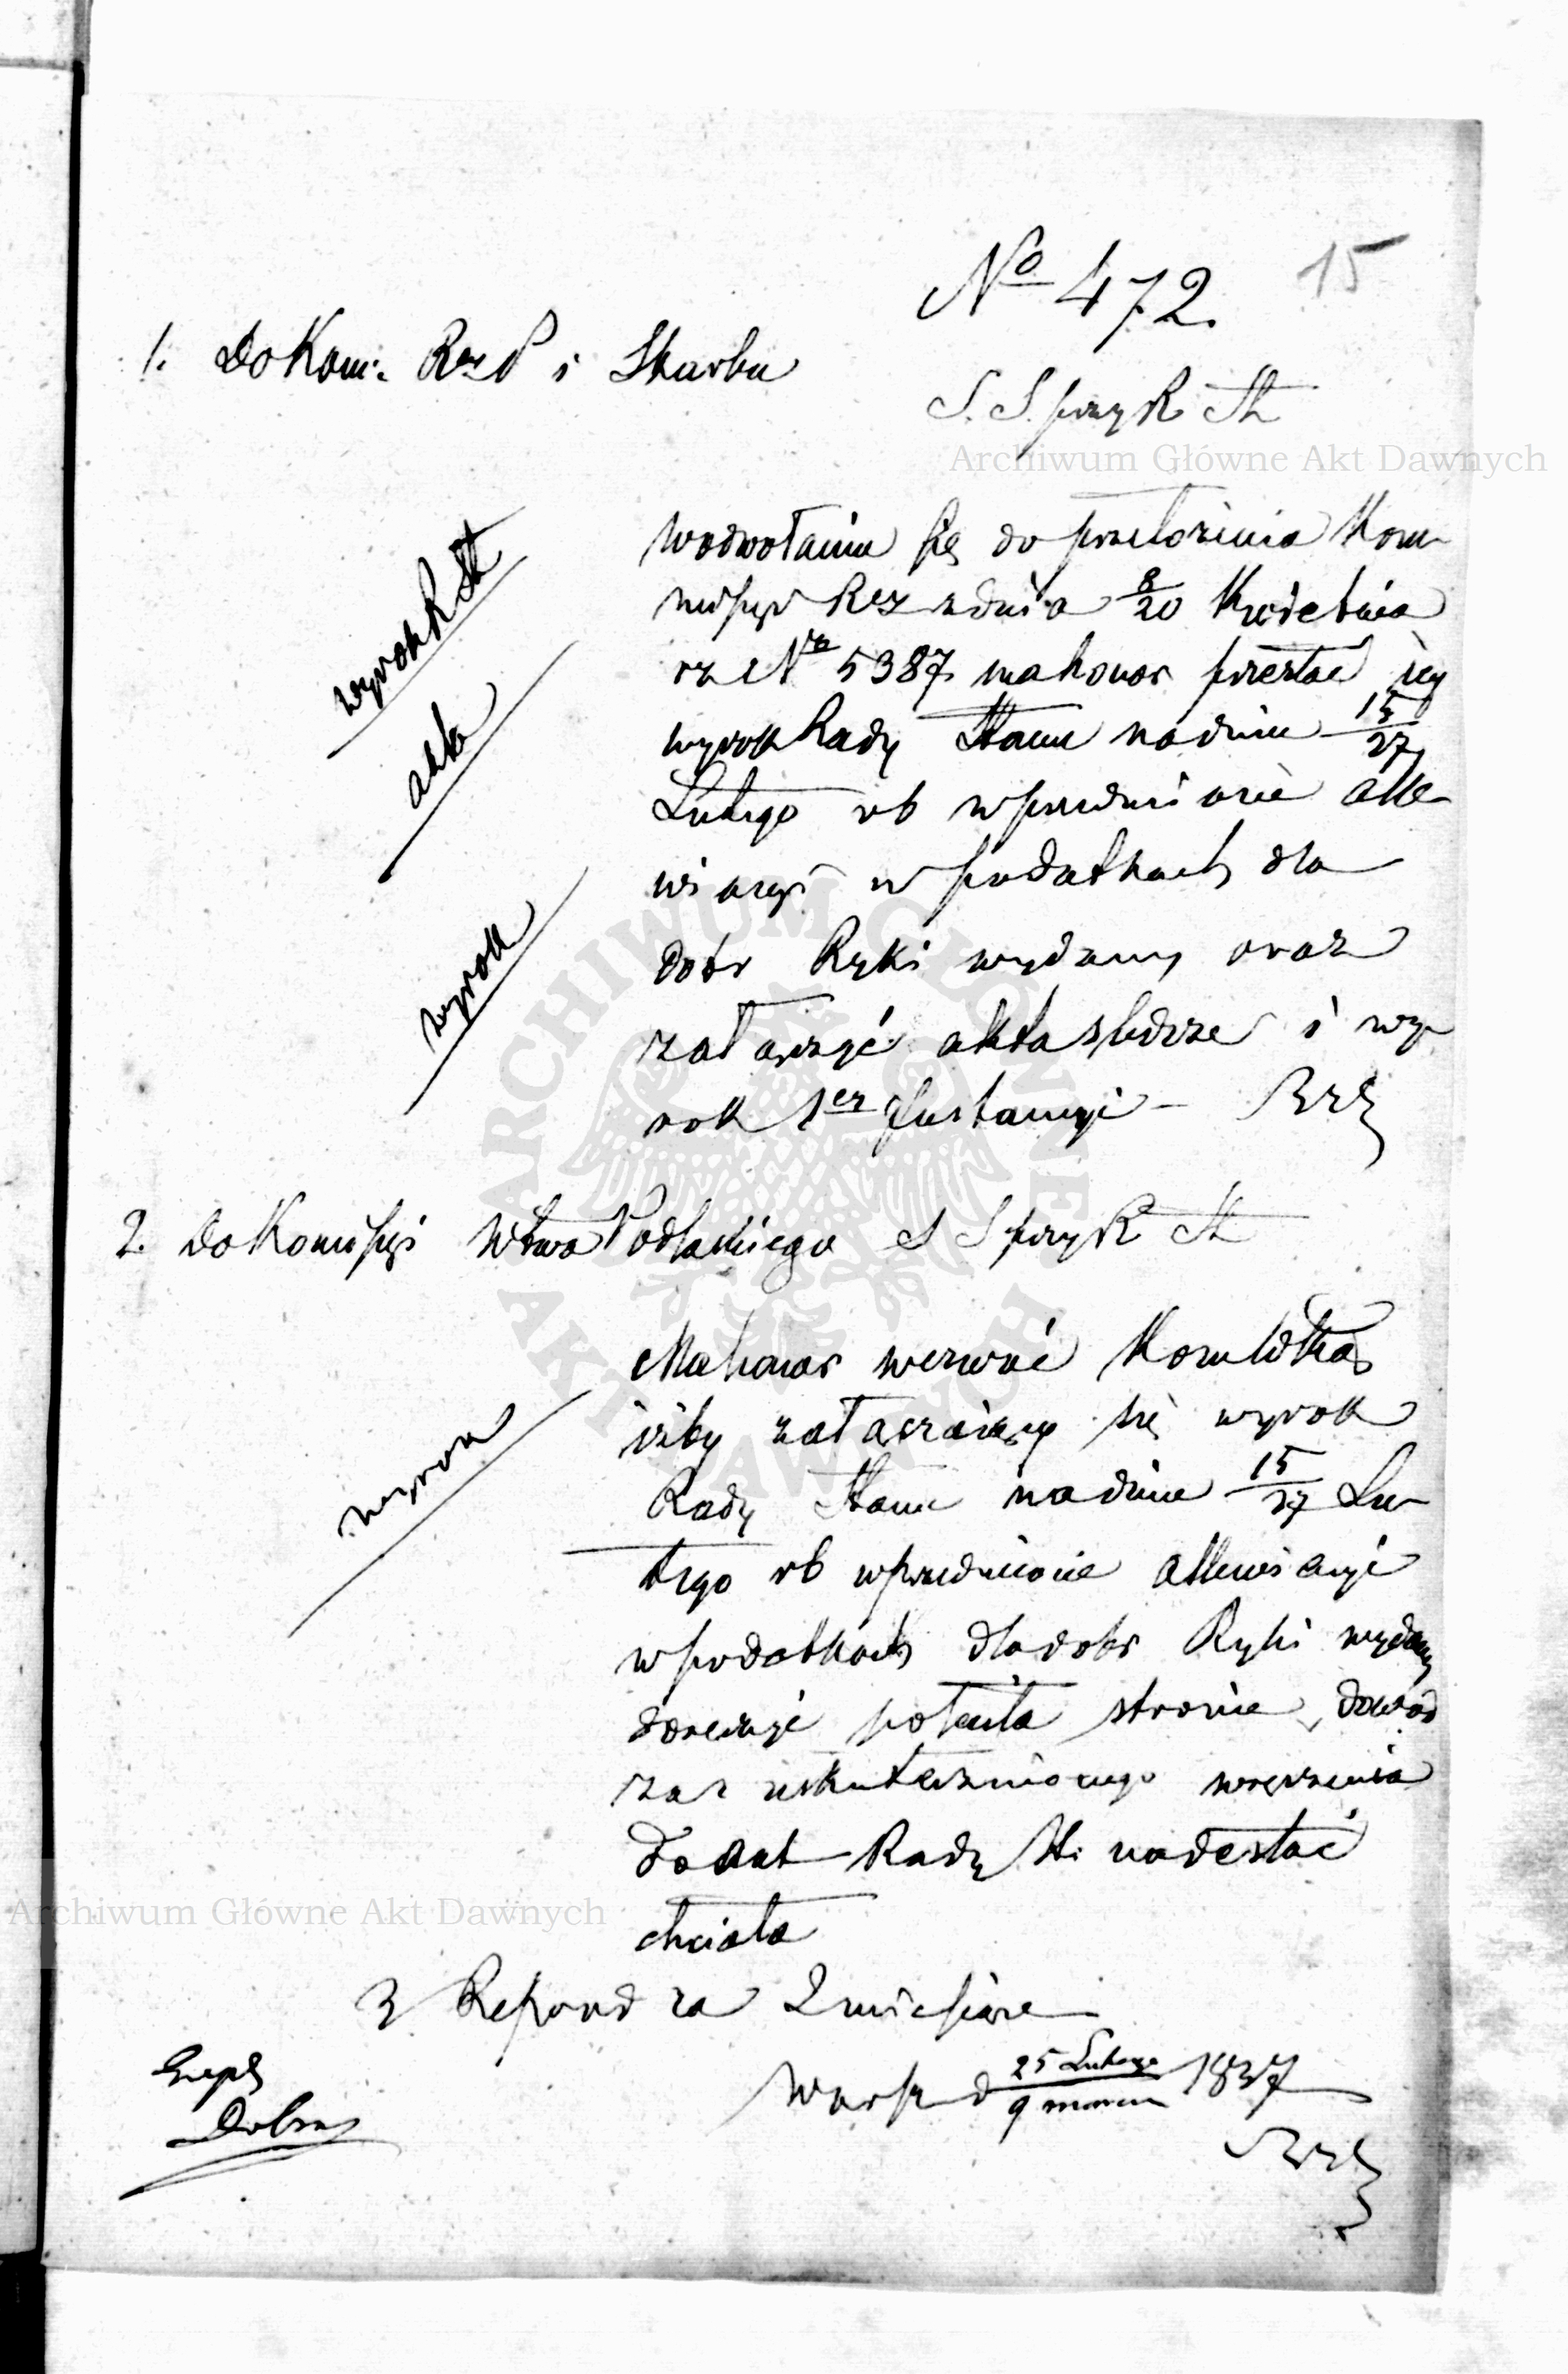 No 472.
15
1. Do Kom. Rz P i Skarbu
S. S. przy R St
Archiwum Główne Akt Dawnych
wyrok R St
akta
wyrok
W odwołaniu się do przełożenia Kom-
missyi Rz z dnia 8/20 Kwietnia
za Nr 5387 ma honor przesłać jey
wyrok Rady Stanu na dniu 15/27
Lutego rb w przedmiocie alle-
wiacyi w podatkach dla
dobr Ryki wydany oraz
załączyć akta śledcze i wy-
rok 1er Instancyi -
2. Do Komissyi Wtwa Podlaskiego S S przy R St
wyrok
Ma honor wezwać Kom Wtką
iżby załączaiący się wyrok
Rady Stanu na dniu 15/27 Lu-
tego rb w przedmiocie allewiacyi
w podatkach dla dobr Ryki wydany
doręczyć poleciła stronie, dowód
zaś uskutecznionego wręczenia
do akt Rady St. nadesłać
chciała
Archiwum Główne Akt Dawnych
3 Repond za 2 miesiące
Warsz d 25 Lutego / 9 marca 1837
ARCHIWUM GŁÓWNE AKT DAWNYCH